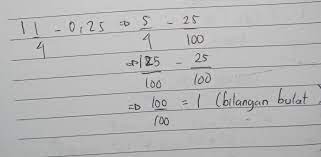 1 1/4 - 0,25 ⇒ 5/4 - 25/100
⇒ 125/100 - 25/100
⇒ 100/100 = 1 (bilangan bulat)